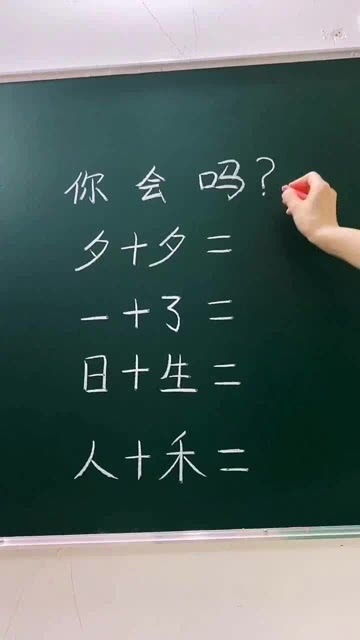 你会吗?
夕+夕=
一+了=
日+生=
人+禾=